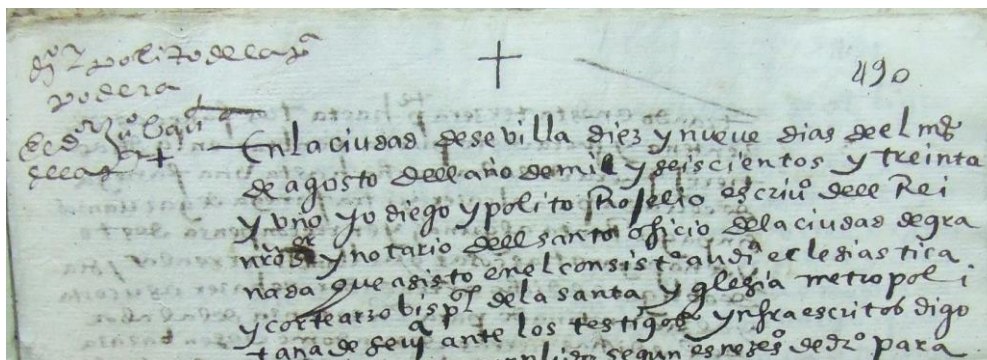 dgº ypolito de la pª
podera
490
En la ciudad de sevilla diez y nueve dias de el mes
de agosto dell año de mil y seiscientos y treinta
y uno yo diego ypolito Roselio escriuº dell Rei
nrō sºr y notario dell santo oficio de la ciudad de gra
nada que asisto en el consistº audiª eclesiastica
y corte arzobispˡ de la santa yglesia metropoli
tana de sevª ante los testigos ynfraescritos digo
segun es nezesº de drº para